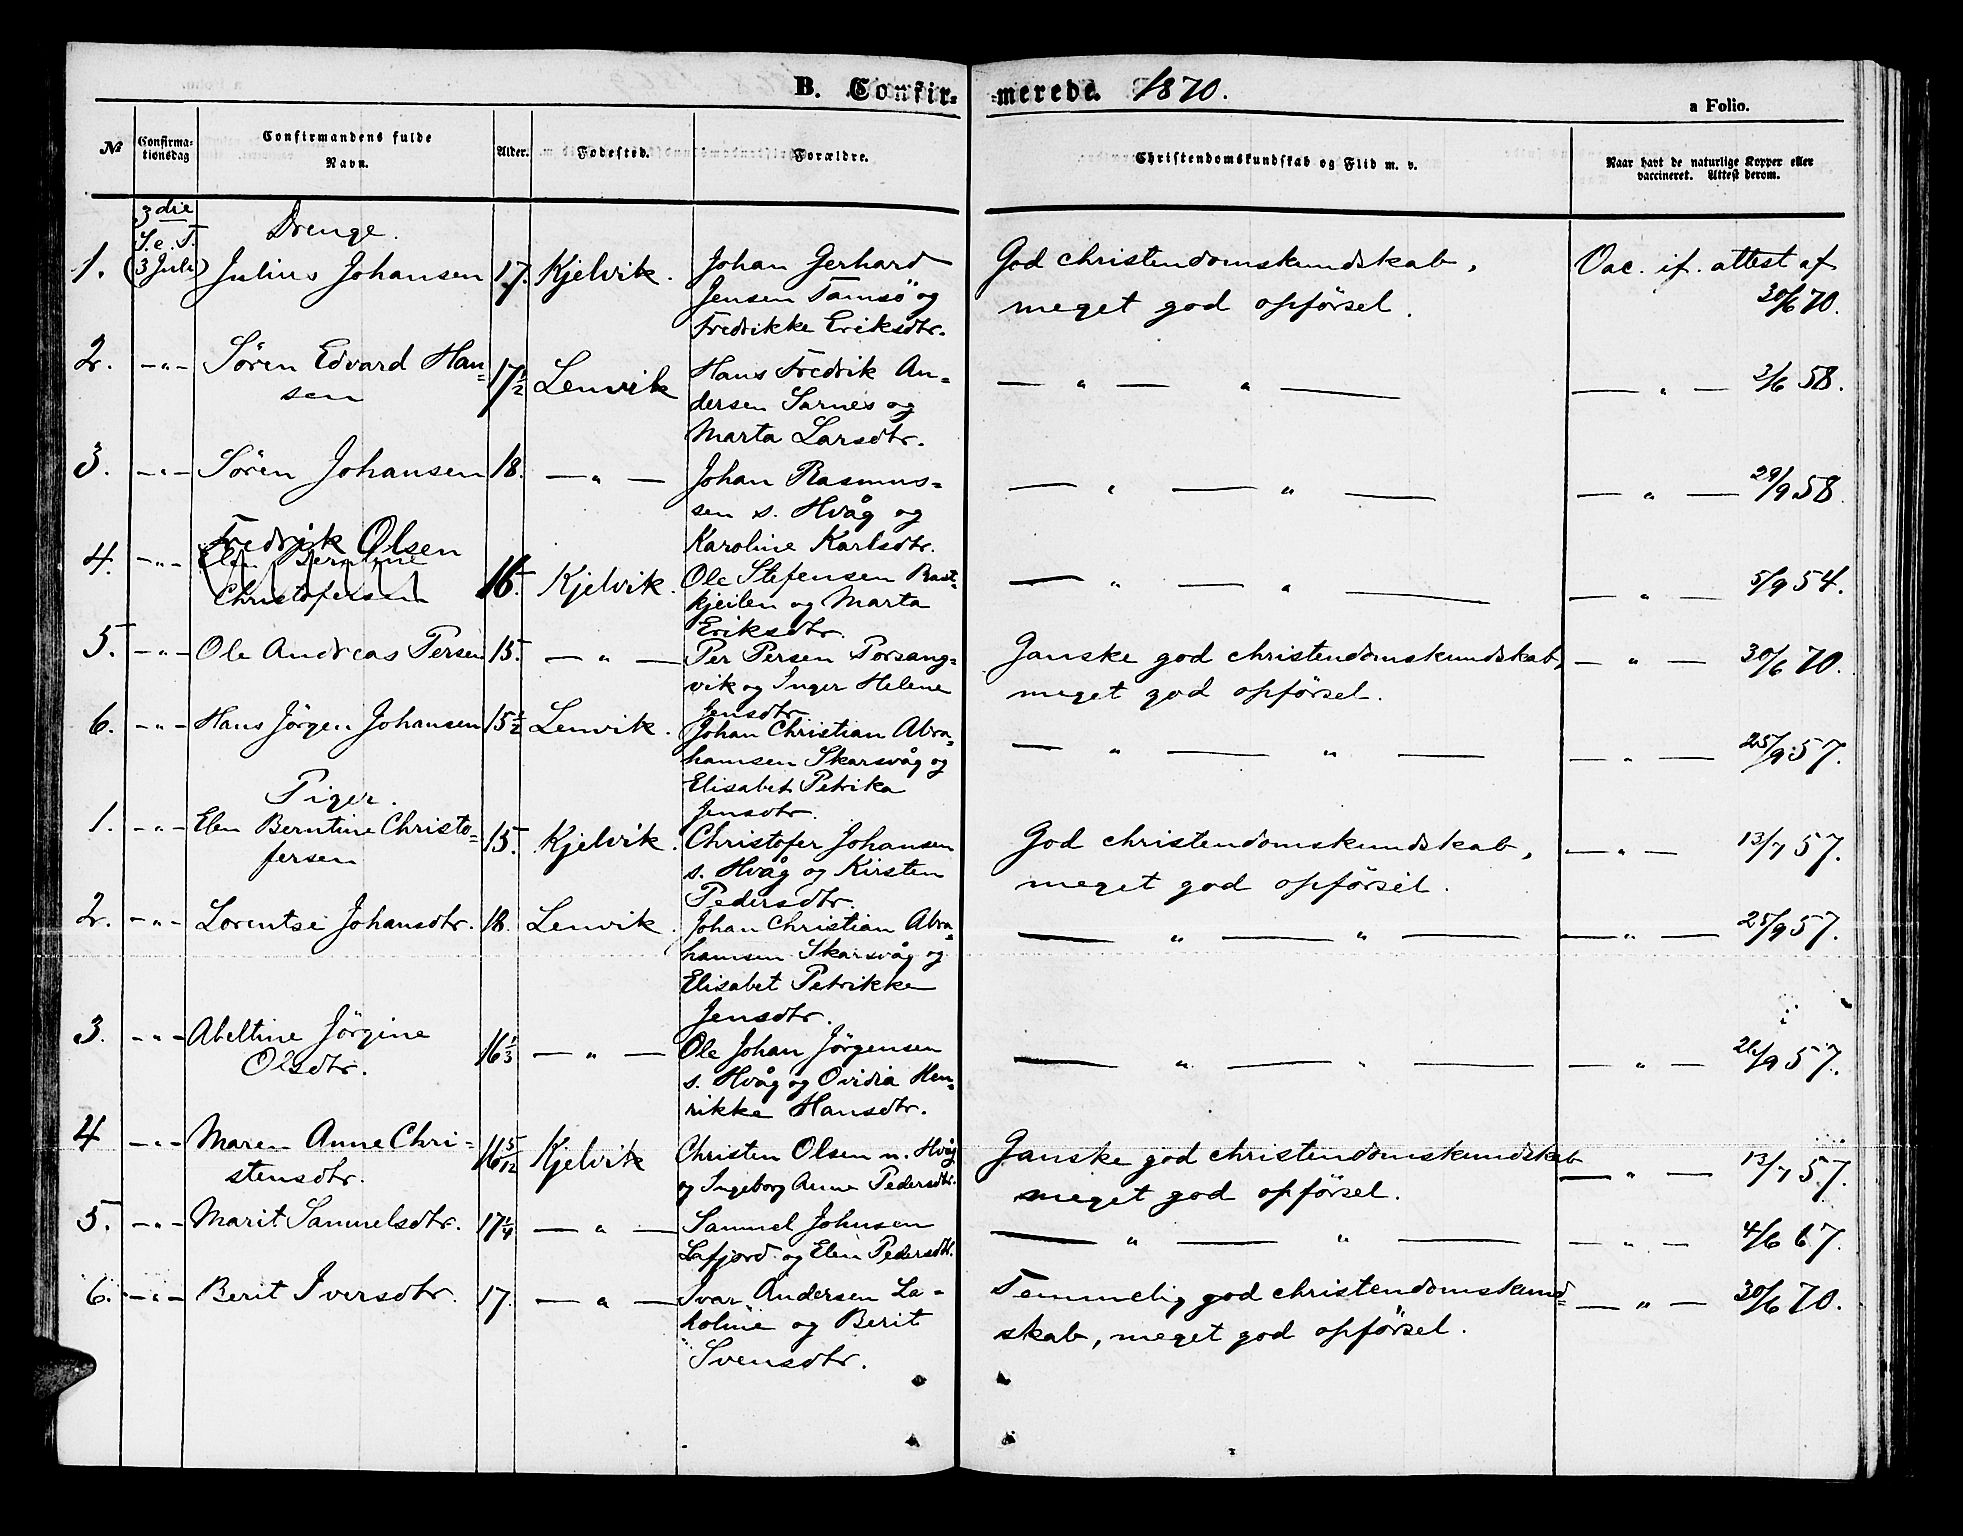 B. Confir-merede. 1870.
a Folio.
№ Confirma-tionsdag Confirmandens fulde Navn. Alder. Fødested. Forældre. Christendomskundskab og Flid m. v. Naar havt de naturlige Kopper eller vaccineret. Attest derom.
3die
S. e. T.
(3 Juli)
Drenge.
1. Julius Johansen 17. Kjelvik. Johan Gerhard God christendomskundskab, Vac. if. attest af
Jensen Tamsö og meget god opförsel. 30/6 70.
Fredrikke Eriksdtr.
2. -"- Sören Edvard Han= 17½ Lenvik Hans Fredrik An= — " — " — — " — 3/6 58.
sen dersen Sarnes og
Marta Larsdtr.
3. -"- Sören Johansen 18. — " — Johan Rasmus= — " — " — — " — 29/9 58.
sen s. Hvåg og
Karoline Karlsdtr.
Fredrik Olsen
4. -"- Elen Berntine 16. Kjelvik. Ole Stefensen Bast= — " — " — — " — 5/9 54.
Christofersen kjeilen og Marta
Eriksdtr.
5. -"- Ole Andreas Persen 15. — " — Per Persen Porsang= Ganske god christendomskundskab, — " — 30/6 70.
vik og Inger Helene meget god opförsel.
Jensdtr.
6. -"- Hans Jörgen Johansen 15½ Lenvik. Johan Christian Abra= — " — " — — " — 25/9 57.
hamsen Skarsvåg og
Elisabet Petrika
Jensdtr.
Piger.
1. -"- Elen Berntine Christo= 15. Kjelvik. Christofer Johansen God christendomskundskab, — " — 13/7 57.
fersen s. Hvåg og Kirsten meget god opförsel.
Pedersdtr.
2. -"- Lorentse Johansdtr. 18. Lenvik. Johan Christian Abra= — " — " — — " — 25/9 57.
hamsen Skarsvåg og
Elisabet Petrikke
Jensdtr.
3. -"- Abeltine Jörgine 16⅓ — " — Ole Johan Jörgensen — " — " — — " — 26/9 57.
Olsdtr. s. Hvåg og Ovidia Hen=
rikke Hansdtr.
4 -"- Maren Anne Chri= 16 5/12 Kjelvik Christen Olsen n. Hvåg Ganske god christendomskundskab — " — 13/7 57.
stensdtr. og Ingeborg Anne Pedersdtr. meget god opförsel.
5. -"- Marit Samuelsdtr. 17¼ — " — Samuel Johnsen — " — " — — " — 4/6 67.
Lafjord og Elen Pedersdtr.
6. -"- Berit Iversdtr. 17. — " — Ivar Andersen La= Temmelig god christendomskund= — " — 30/6 70.
holme og Berit skab, meget god opförsel.
Svensdtr.